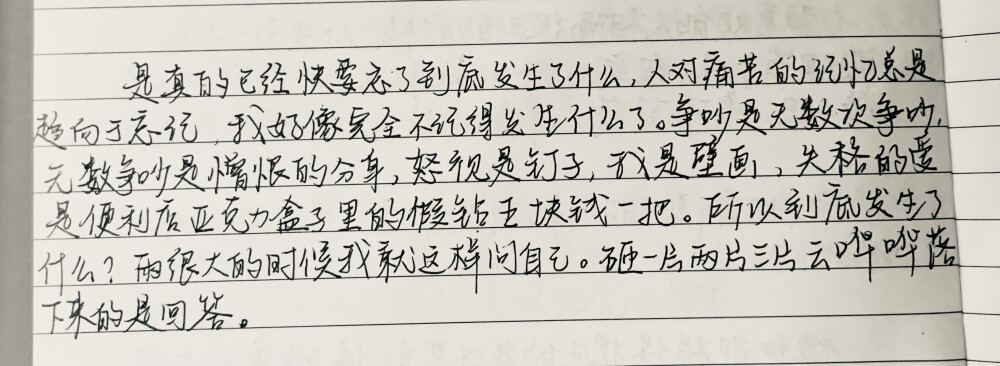 是真的已经快要忘了到底发生了什么,人对痛苦的记忆总是
趋向于忘记,我好像完全不记得发生什么了。争吵是无数次争吵,
无数争吵是憎恨的分身,怒视是钉子,我是壁画,失格的爱
是便利店亚克力盒子里的假钻五块钱一把。所以到底发生了
什么?雨很大的时候我就这样问自己。砸一片两片三片云哗哗落
下来的是回答。